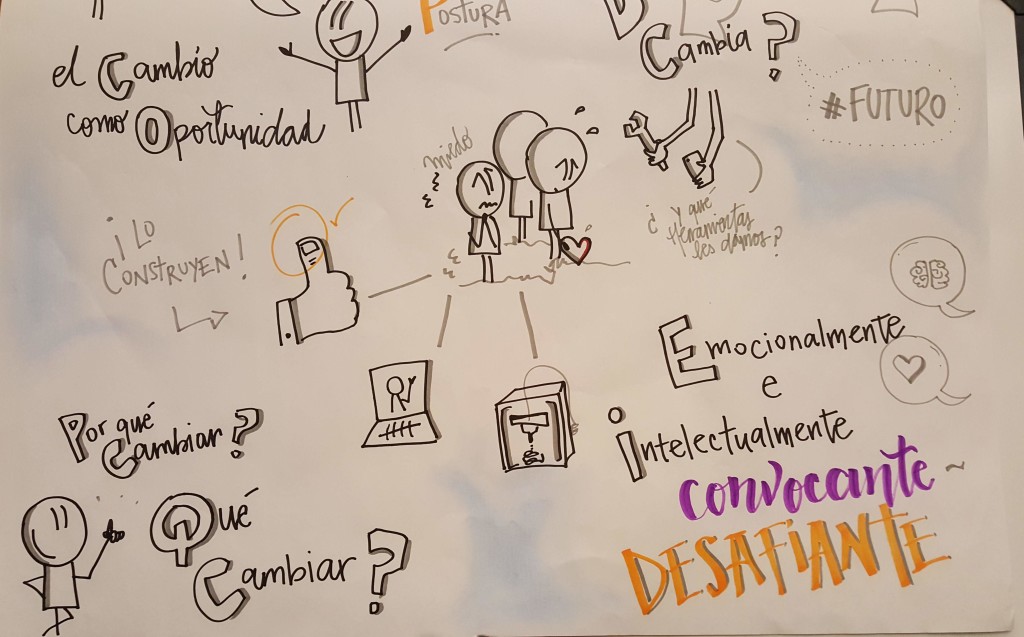 Postura
el Cambio
como Oportunidad
Cambia?
#FUTURO
miedo
¡Lo
Construyen!
¿ y qué
Herramientas
les damos?
Emocionalmente
e
intelectualmente
convocante ~
DESAFIANTE
Por qué
Cambiar?
Qué
Cambiar?